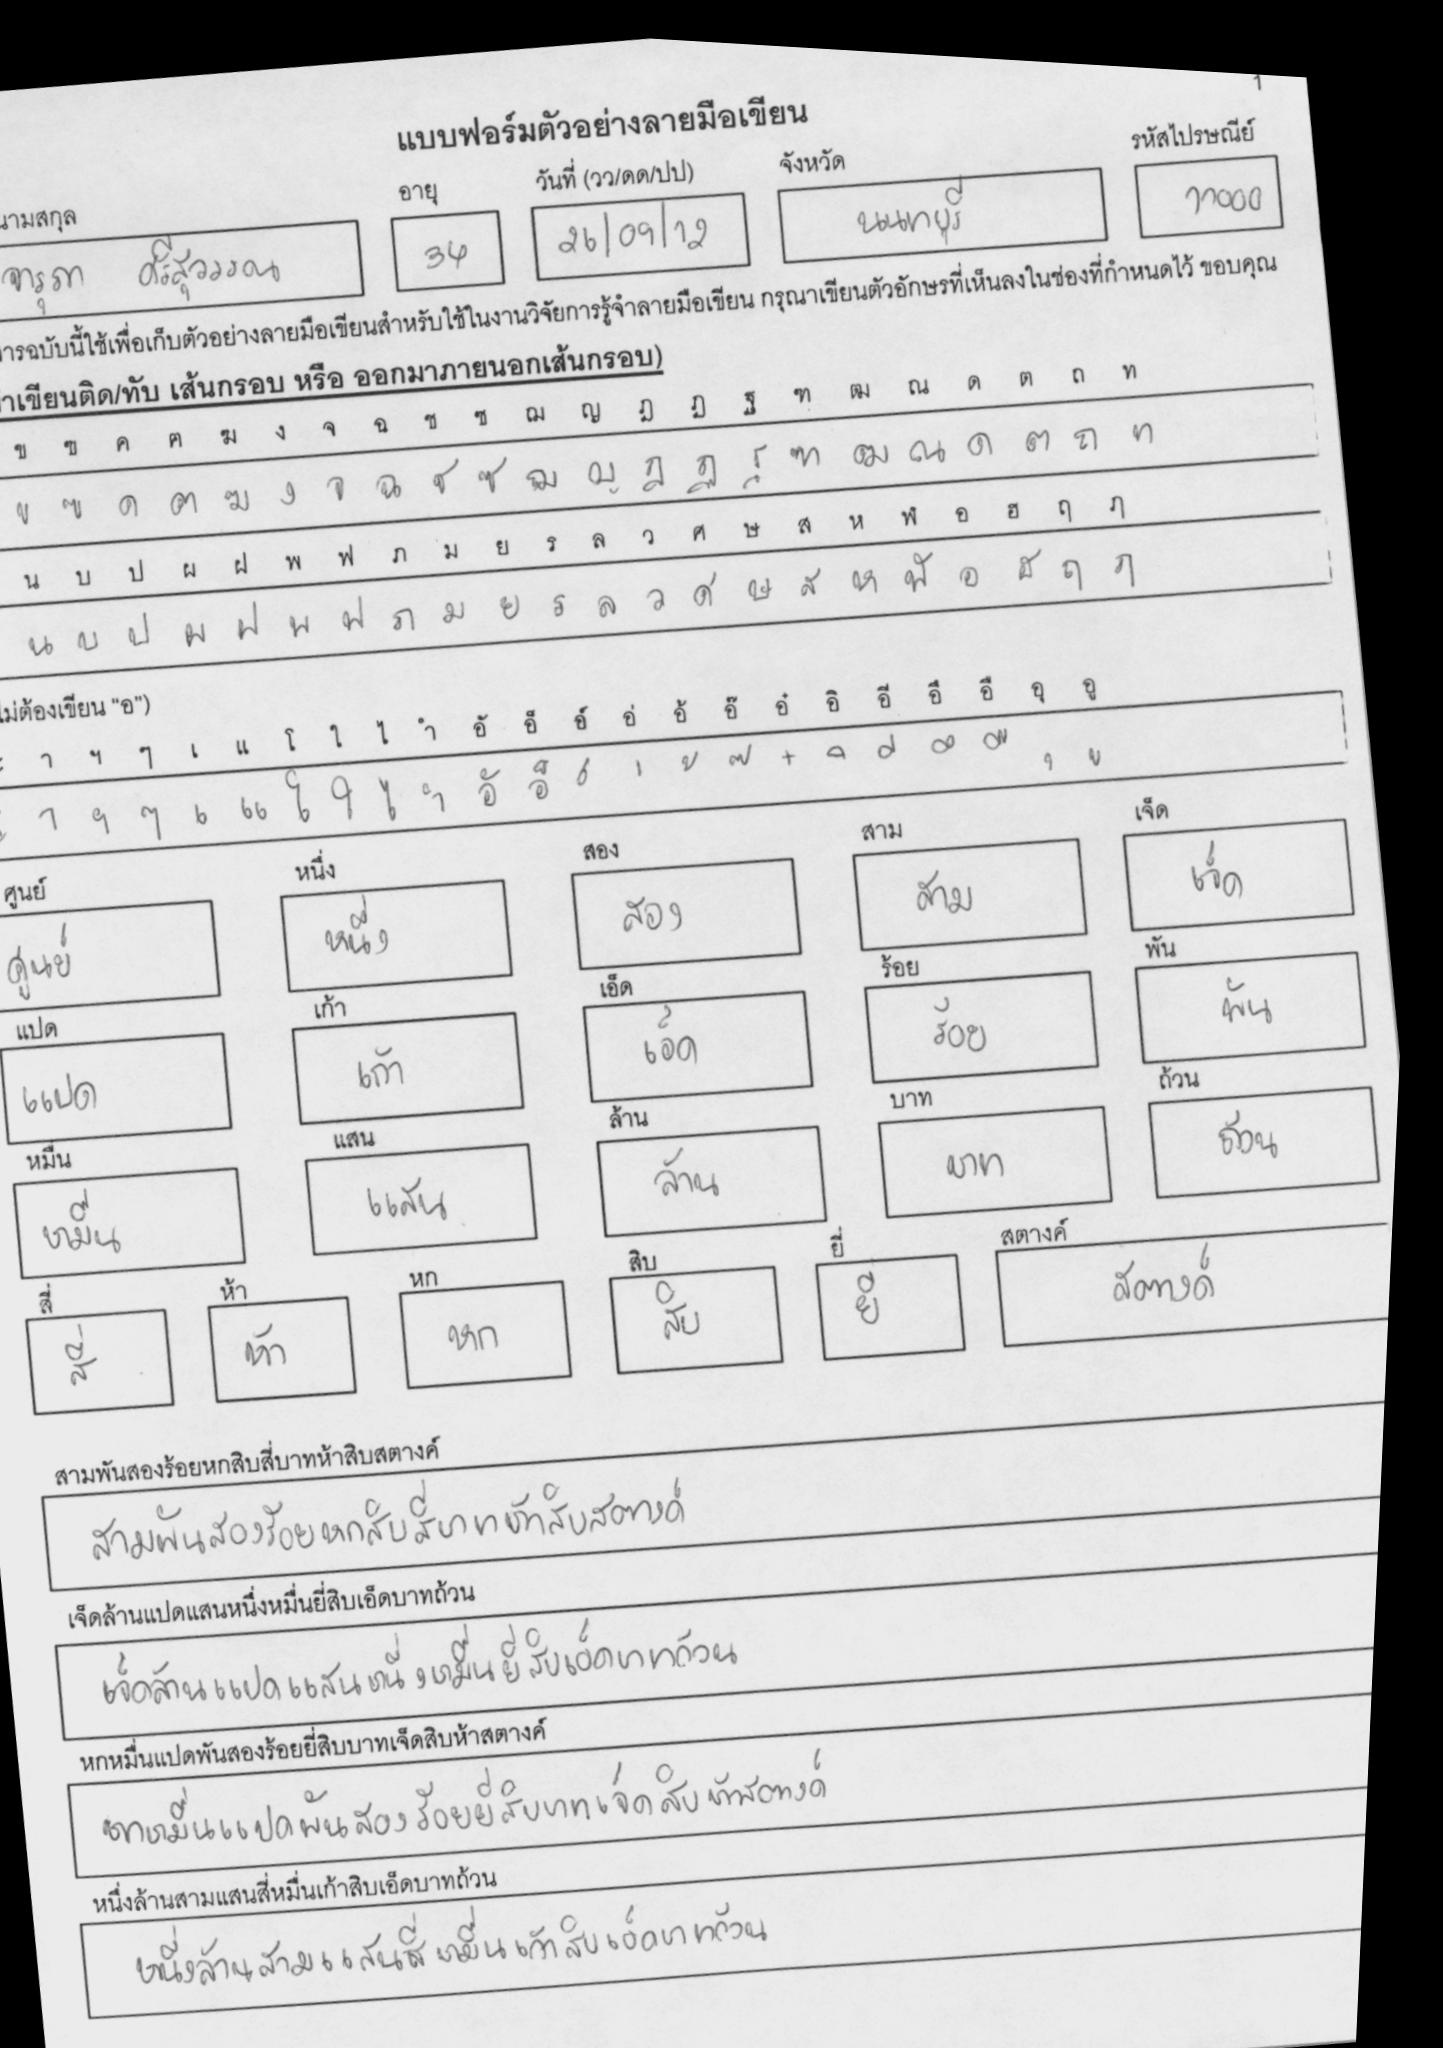 1
แบบฟอร์มตัวอย่างลายมือเขียน
นามสกุล อายุ วันที่ (วว/ดด/ปป) จังหวัด รหัสไปรษณีย์
จารุภา ศรีสุวรรณ 34 26/09/12 นนทบุรี 11000
ารฉบับนี้ใช้เพื่อเก็บตัวอย่างลายมือเขียนสำหรับใช้ในงานวิจัยการรู้จำลายมือเขียน กรุณาเขียนตัวอักษรที่เห็นลงในช่องที่กำหนดไว้ ขอบคุณ
าเขียนติด/ทับ เส้นกรอบ หรือ ออกมาภายนอกเส้นกรอบ)
ข ฃ ค ฅ ฆ ง จ ฉ ช ซ ฌ ญ ฎ ฏ ฐ ฑ ฒ ณ ด ต ถ ท
ข ฃ ค ฅ ฆ ง จ ฉ ช ซ ฌ ญ ฎ ฏ ฐ ฑ ฒ ณ ด ต ถ ท
น บ ป ผ ฝ พ ฟ ภ ม ย ร ล ว ศ ษ ส ห ฬ อ ฮ ฤ ฦ
น บ ป ผ ฝ พ ฟ ภ ม ย ร ล ว ศ ษ ส ห ฬ อ ฮ ฤ ฦ
ไม่ต้องเขียน "อ")
ะ า ฯ ๆ เ แ โ ใ ไ ำ อั อ็ อ์ อ่ อ้ อ๊ อ๋ อิ อี อึ อื อุ อู
ะ า ฯ ๆ เ แ โ ใ ไ ำ อั อ็ ์ ่ ้ ๊ ๋ ิ ี ึ ื ุ ู
ศูนย์ หนึ่ง สอง สาม เจ็ด
ศูนย์ หนึ่ง สอง สาม เจ็ด
แปด เก้า เอ็ด ร้อย พัน
แปด เก้า เอ็ด ร้อย พัน
หมื่น แสน ล้าน บาท ถ้วน
หมื่น แสน ล้าน บาท ถ้วน
สี่ ห้า หก สิบ ยี่ สตางค์
สี่ ห้า หก สิบ ยี่ สตางค์
สามพันสองร้อยหกสิบสี่บาทห้าสิบสตางค์
สามพันสองร้อยหกสิบสี่บาทห้าสิบสตางค์
เจ็ดล้านแปดแสนหนึ่งหมื่นยี่สิบเอ็ดบาทถ้วน
เจ็ดล้านแปดแสนหนึ่งหมื่นยี่สิบเอ็ดบาทถ้วน
หกหมื่นแปดพันสองร้อยยี่สิบบาทเจ็ดสิบห้าสตางค์
หกหมื่นแปดพันสองร้อยยี่สิบบาทเจ็ดสิบห้าสตางค์
หนึ่งล้านสามแสนสี่หมื่นเก้าสิบเอ็ดบาทถ้วน
หนึ่งล้านสามแสนสี่หมื่นเก้าสิบเอ็ดบาทถ้วน